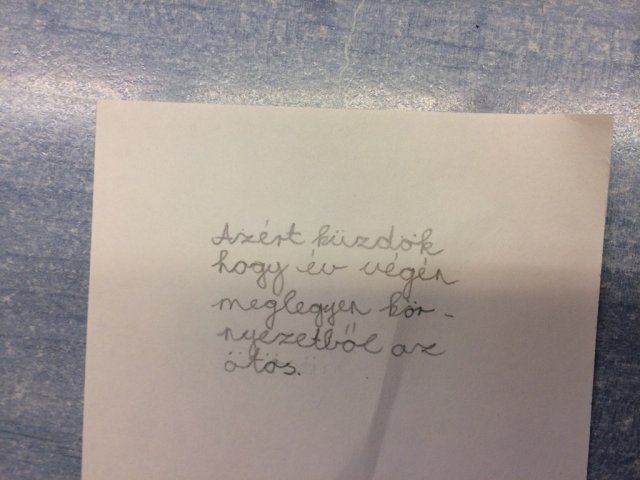 Azért küzdök
hogy év végén
meglegyen kör-
nyezetből az
ötös.